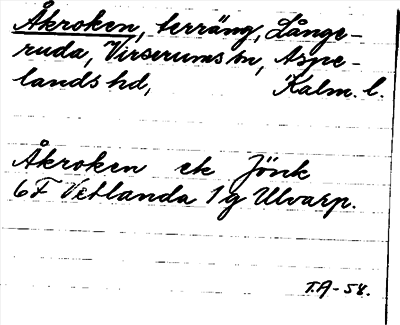 Åkroken, terräng, Långe-
ruda, Virserums sn, Aspe-
lands hd, Kalm. l.
Åkroken ek Jönk
6F Vetlanda 1g Ulvarp.
T.A-58.